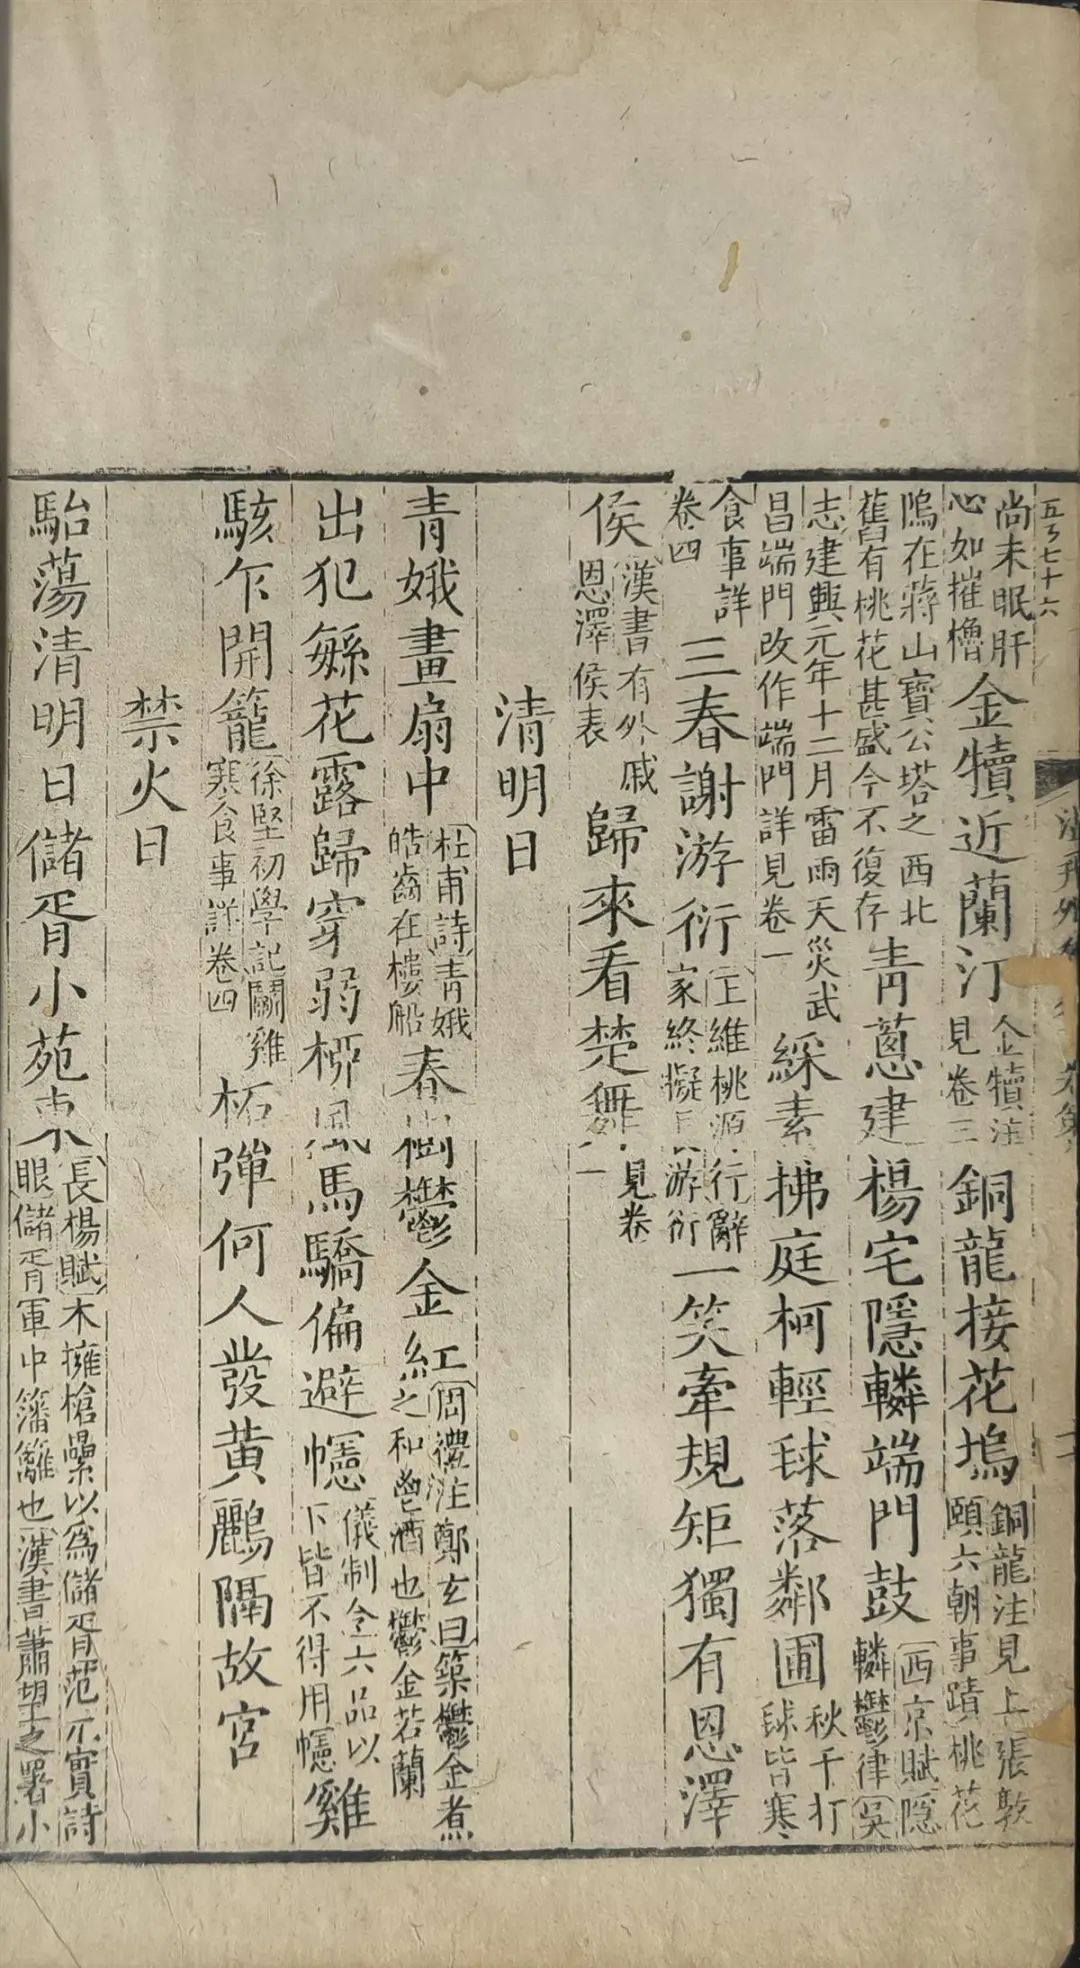 尚未眠肝
心如摧櫓金犢近蘭汀金犢注
見卷三銅龍接花塢銅龍注見上張敦
頤六朝事蹟桃花
塢在蔣山寶公塔之西北
舊有桃花甚盛今不復存青蔥建楊宅隱轔端門鼓西京賦隱
轔鬱律吳
志建興元年十二月雷雨天災武
昌端門改作端門詳見卷一綵素拂庭柯輕毬落鄰圃秋千打
毬皆寒
食事詳
卷四三春謝游衍王維桃源行辭
家終擬長游衍一笑牽規矩獨有恩澤
侯漢書有外戚
恩澤侯表歸來看楚舞見卷
一
清明日
青娥畫扇中杜甫詩青娥
皓齒在樓船春樹鬱金紅周禮注鄭玄曰築鬱金煮
之和鬯酒也鬱金若蘭
出犯繁花露歸穿弱柳風馬驕偏避幰儀制令六品以
下皆不得用幰雞
駭乍開籠徐堅初學記鬬雞
寒食事詳卷四柘彈何人發黃鸝隔故宮
禁火日
駘蕩清明日儲胥小苑東長楊賦木擁槍纍以為儲胥范不實詩
眼儲胥軍中籓籬也漢書蕭望之署小
五百七十六